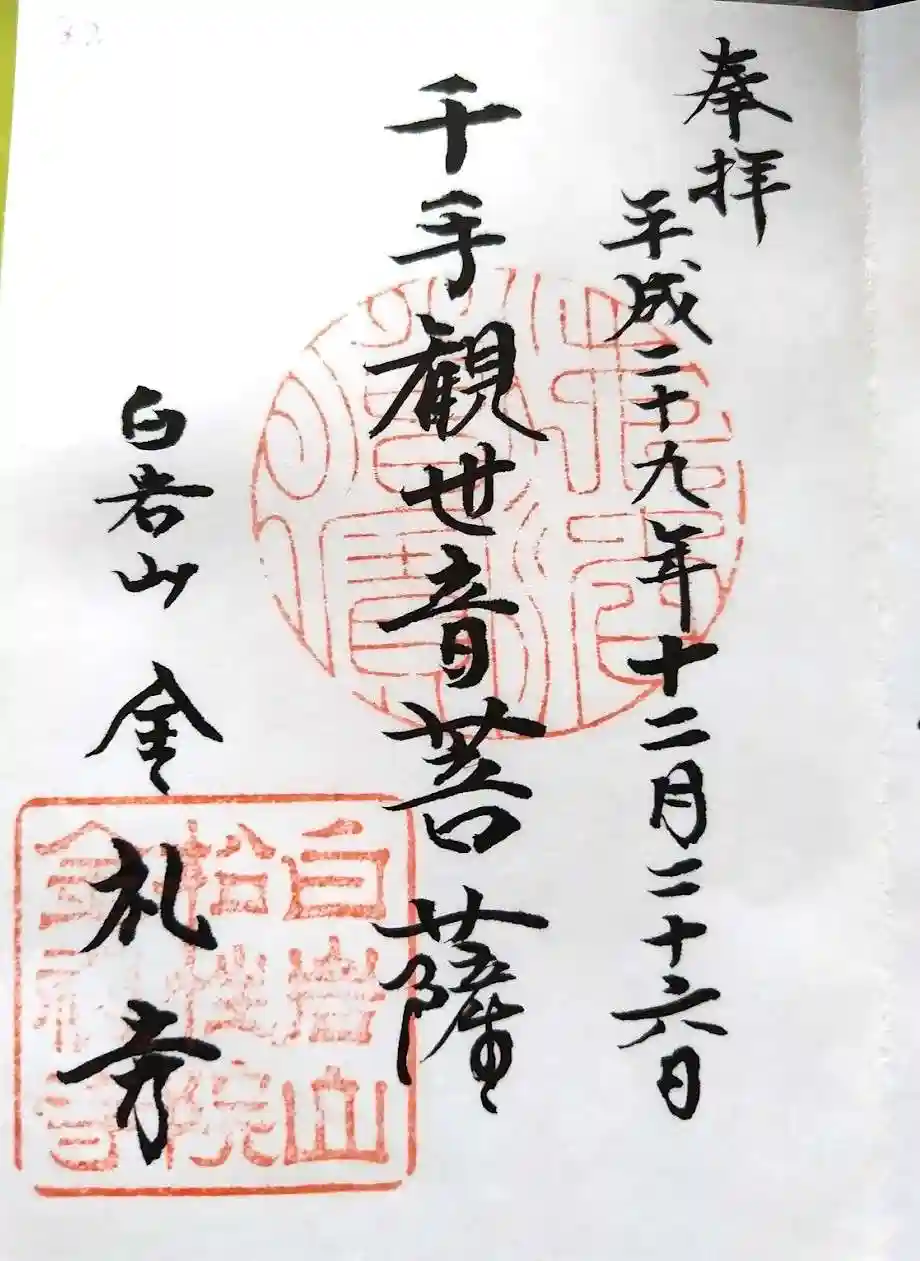 奉拝
平成二十九年十二月二十六日
千手観世音菩薩
白岩山 金札寺
白岩山